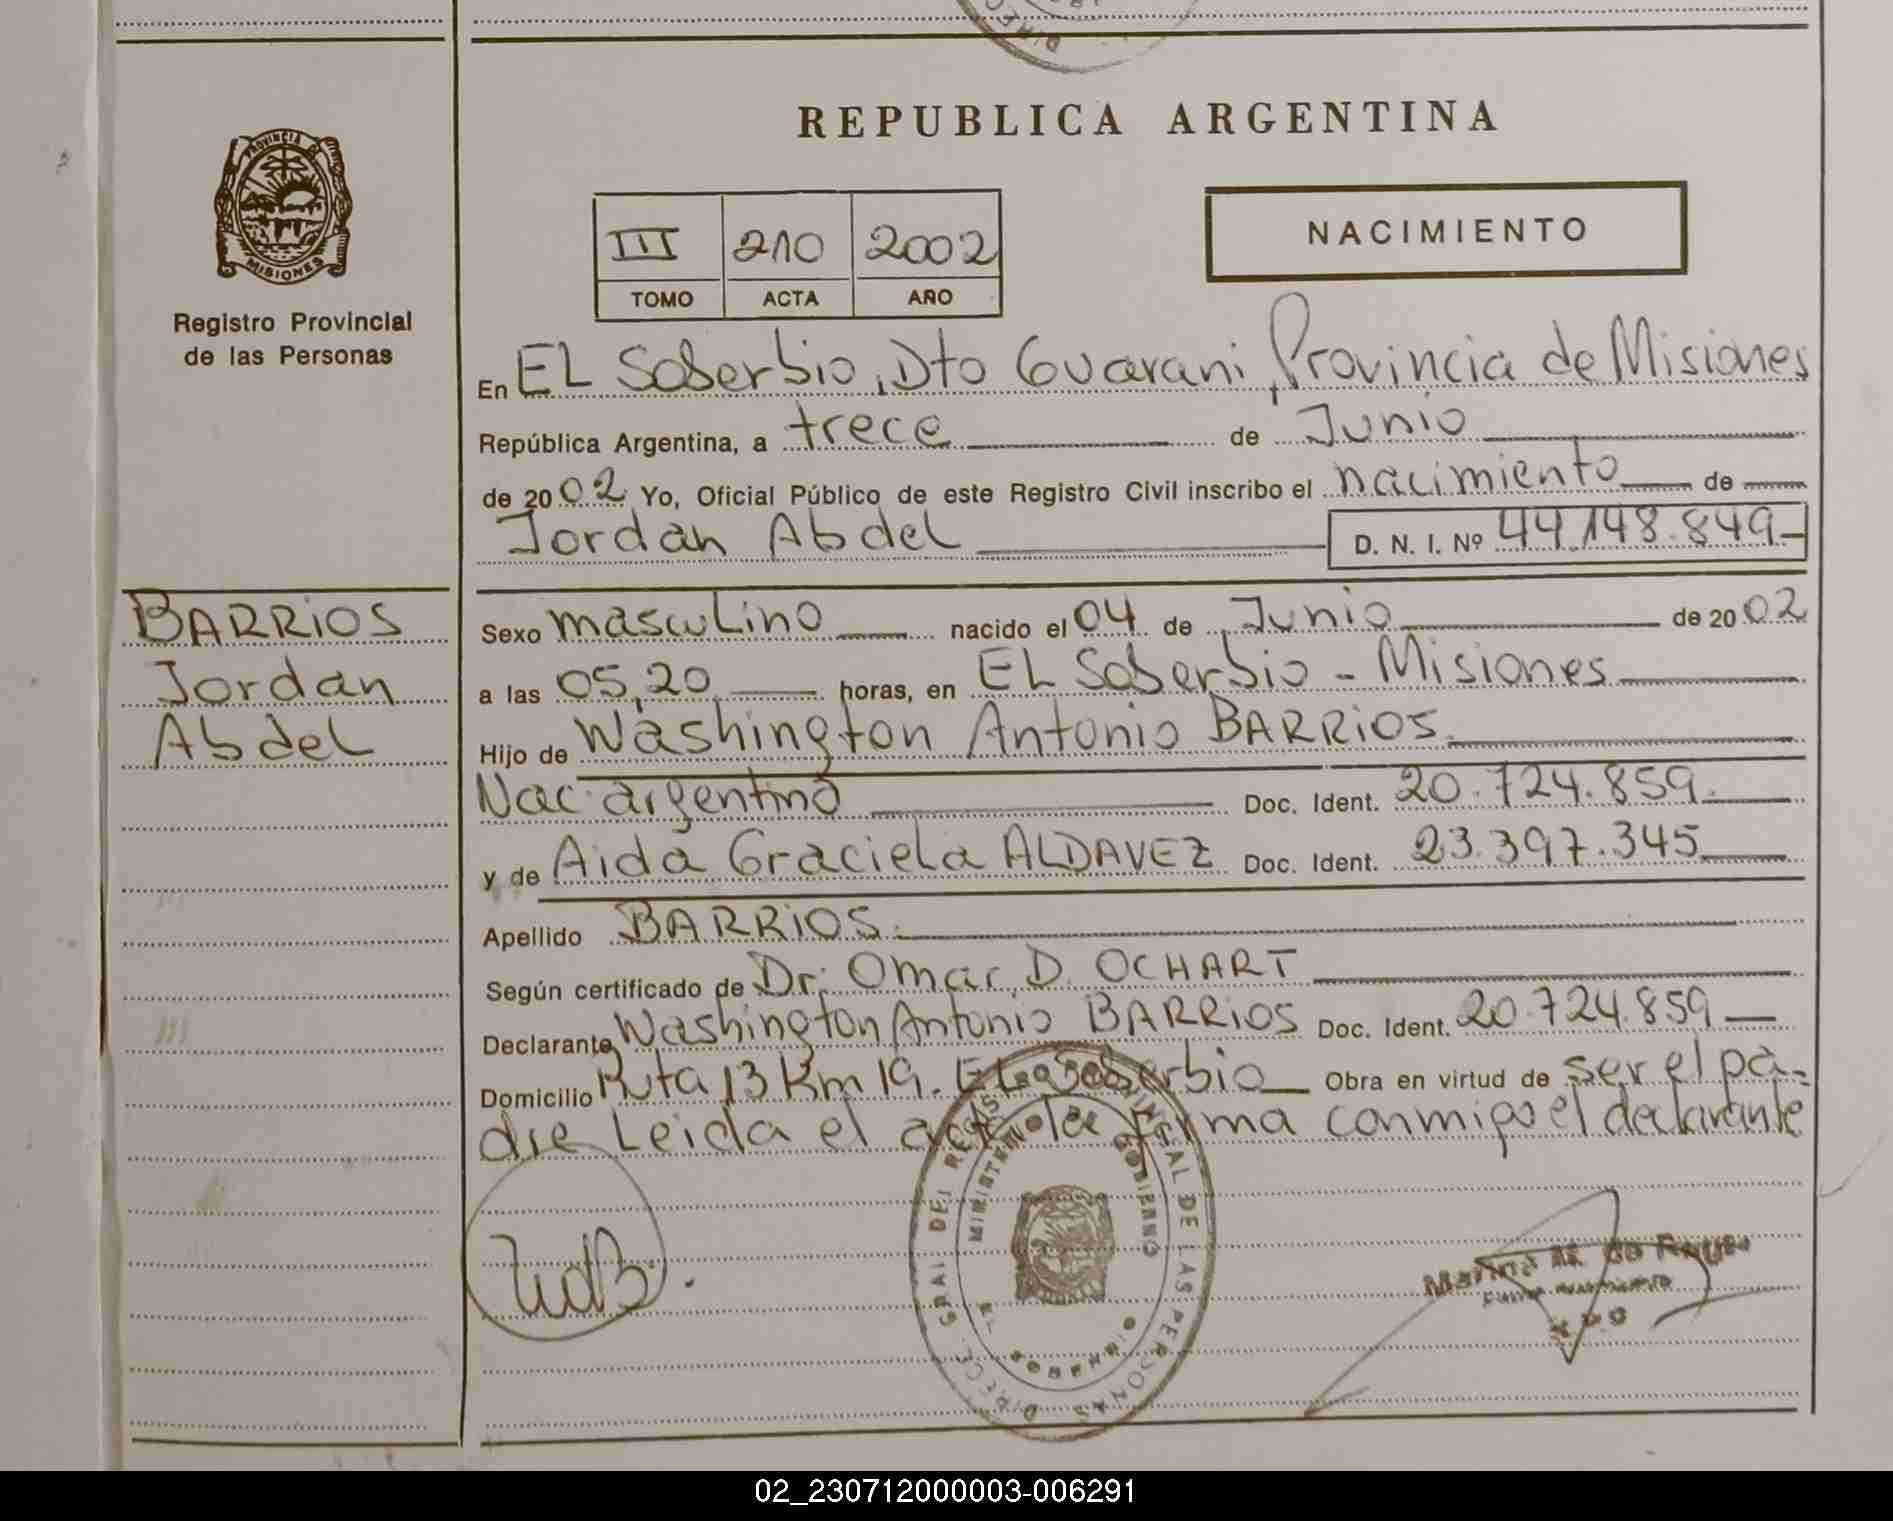 REPUBLICA ARGENTINA
PROVINCIA DE
MISIONES
Registro Provincial
de las Personas
III 210 2002
TOMO ACTA AÑO
NACIMIENTO
En EL Soberbio, Dto Guarani, Provincia de Misiones
República Argentina, a trece de Junio
de 2002 Yo, Oficial Público de este Registro Civil inscribo el nacimiento de
Jordan Abdel D. N. I. Nº 44.148.849-
BARRIOS
Jordan
Abdel
Sexo masculino nacido el 04 de Junio de 2002
a las 05,20 horas, en EL Soberbio - Misiones
Hijo de Washington Antonio BARRIOS
Nac. argentino Doc. Ident. 20.724.859.
y de Aida Graciela ALDAVEZ Doc. Ident. 23.397.345
Apellido BARRIOS.
Según certificado de Dr. Omar D. OCHART
Declarante Washington Antonio BARRIOS Doc. Ident. 20.724.859
Domicilio Ruta 13 Km 19. EL Soberbio Obra en virtud de ser el pa-
dre Leida el acta la firma conmigo el declarante
DIRECC. GRAL DEL REG. PROVINCIAL DE LAS PERSONAS
MINISTERIO DE GOBIERNO
EL SOBERBIO
02_230712000003-006291